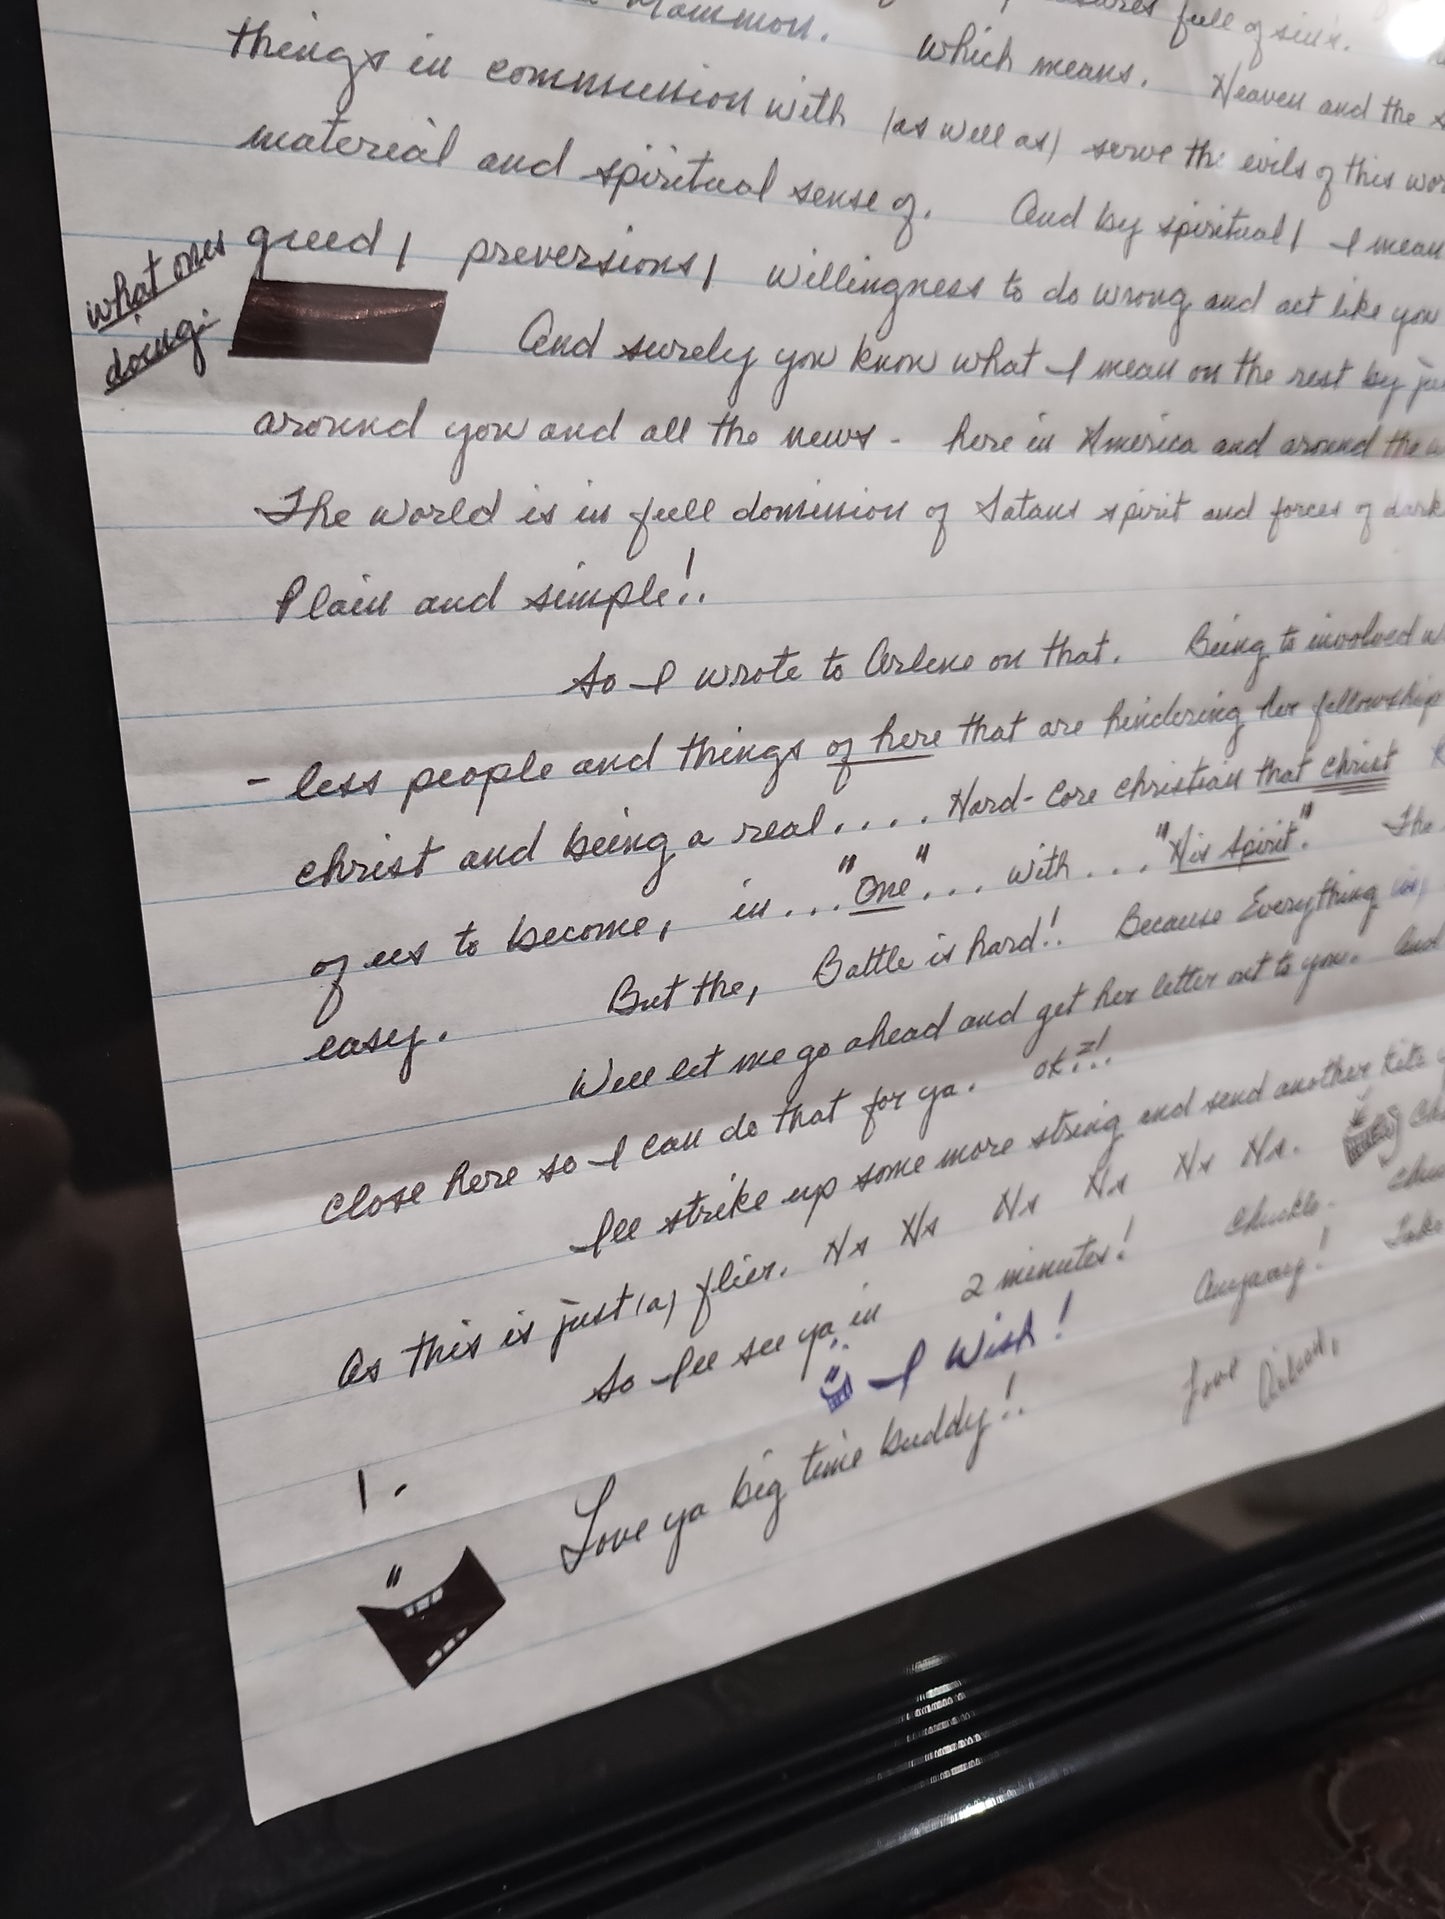 Mammon. which means. Heaven and the
full of sin's.
things in communion with (as well as) serve the evils of this
material and spiritual sense of. And by spiritual, I mean
what ones
doing.
greed, preversions, willingness to do wrong and act like you
And surely you know what I mean on the rest by
around you and all the news - here in America and around the
The world is in full dominion of Satans spirit and forces of
Plain and simple!.
So I wrote to Arlene on that. Being to involved
- less people and things of here that are hindering her fellowship
christ and being a real.... Hard-core christian that christ
of us to become, in... "One"... with... "His Spirit". The
easy. But the, Battle is hard!. Because Everything is,
Well let me go ahead and get her letter out to you. And
close here so I can do that for ya. OK?!.
I'll strike up some more string and send another kite
As this is just (a) flier. Hs Hs Hs Hs Hs Hs.
So I'll see ya in 2 minutes! Chuckle.
I Wish! Anyway! Take
1. Love ya big time buddy!. Love